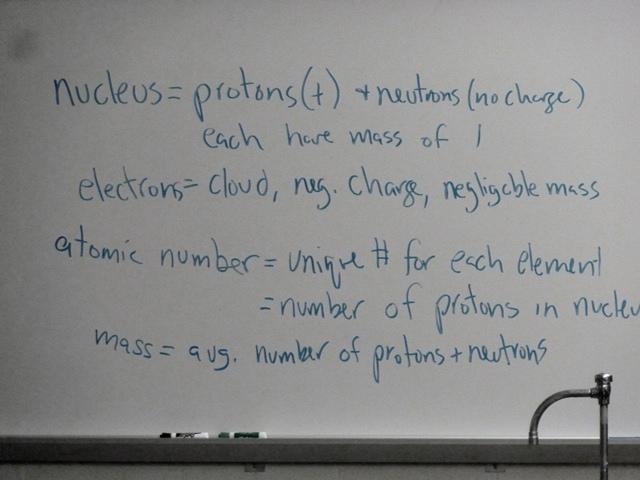 nucleus = protons (+) + neutrons (no charge)
each have mass of 1
electrons = cloud, neg. charge, negligable mass
atomic number = unique # for each element
= number of protons in nucleu
mass = avg. number of protons + neutrons